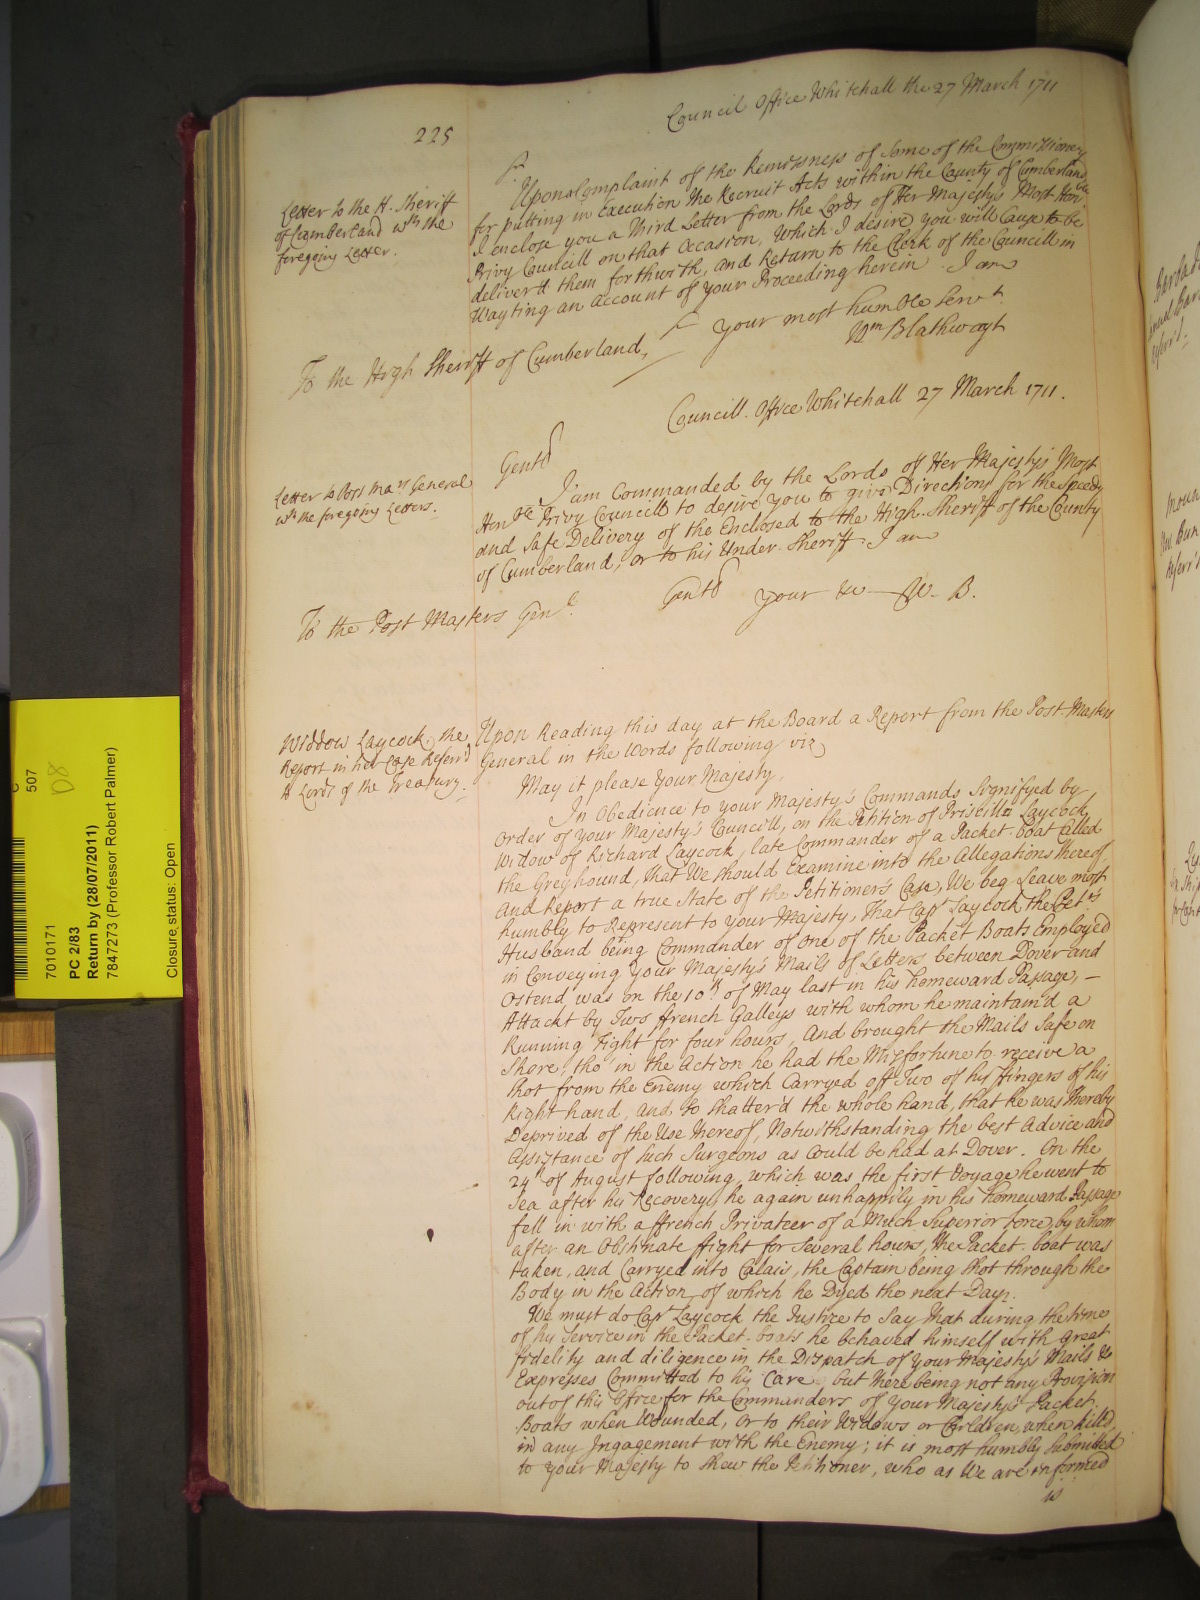 225
Council Office Whitehall the 27 March 1711
Letter to the H. Sheriff
of Cumberland wth the
foregoing Letter.
Sr.
Upon Complaint of the Remissness of some of the Commissioners
for putting in Execution the Recruit Acts within the County of Cumberland
I enclose you a Third Letter from the Lords of Her Majestys Most Honble
Privy Councill on that Occasion, which I desire you will Cause to be
deliver'd them forthwith, and Return to the Clerk of the Councill in
Wayting an Account of your Proceeding herein I am
Sr your most humble Servt.
Wm Blathwayt
To the High Sheriff of Cumberland,
Councill Office Whitehall 27 March 1711.
Letter to Post Mars General
wth the foregoing Letters.
Gentl
I am Commanded by the Lords of Her Majestys Most
Honble Privy Councill to desire you to give Directions for the speedy
and Safe Delivery of the Enclosed to the High Sheriff of the County
of Cumberland, or to his Under Sheriff. I am
Gentl your &c W. B.
To the Post Masters Genl.
Widdow Laycock, the
Report in her Case Referr'd
to Lords of the Treasury.
Upon Reading this day at the Board a Report from the Post Masters
General in the Words following viz
May it please Your Majesty,
In Obedience to your Majesty's Commands Signifyed by
Order of your Majesty's Councill, on the Petition of Priscilla Laycock,
Widow of Richard Laycock, late Commander of a Packet boat Called
the Greyhound, that We should Examine into the Allegations thereof,
and Report a true State of the Petitioners Case, We beg Leave most
humbly to Represent to your Majesty, That Capt Laycock the Petrs
Husband being Commander of one of the Packet Boats Employed
in Conveying your Majesty's Mails of Letters between Dover and
Ostend was on the 10th of May last in his homeward Passage, —
Attackt by Two ffrench Galleys with whom he maintain'd a
Running Fight for four hours, And brought the Mails Safe on
Shore, tho' in the Action he had the Misfortune to receive a
shot from the Enemy which Carryed off Two of his ffingers of his
Right hand, and so shatter'd the whole hand, that he was thereby
Deprived of the Use thereof, Notwithstanding the best Advice and
Assistance of such Surgeons as Could be had at Dover. On the
24th of August following, which was the first Voyage he went to
Sea after his Recovery, he again unhappily in his homeward Passage
fell in with a ffrench Privateer of a Much Superior force, by whom
after an Obstinate ffight for Several hours, the Packet boat was
taken, and Carryed into Calais, the Captain being Shot through the
Body in the Action, of which he Dyed the next Day.
We must do Capt Laycock the Justice to say that during the time
of his Service in the Packet boats he behaved himself with great
fidelity and diligence in the Dispatch of your Majesty's Mails &
Expresses Committed to his Care, but there being not any Provision
out of this Office for the Commanders of your Majesty's Packet
Boats when Wounded, or to their Widows or Children, when killed
in any Ingagement with the Enemy; it is most humbly submitted
to your Majesty to shew the Petitioner, who as We are informed
is
507
7010171
PC 2/83
Return by (28/07/2011)
7847273 (Professor Robert Palmer)
Closure status: Open
D8